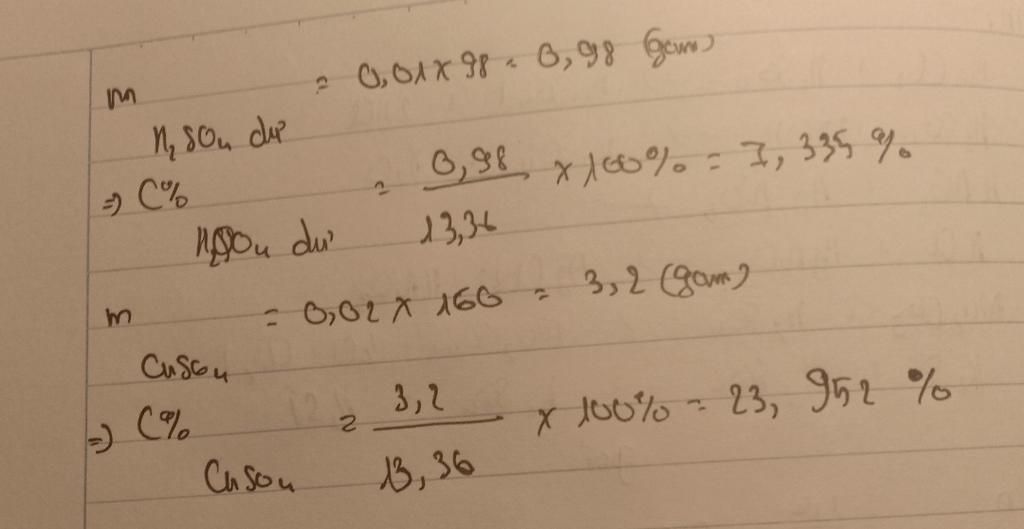 m H₂SO₄ dư = 0,01 x 98 = 0,98 (gam)
=> C% H₂SO₄ dư = 0,98 / 13,36 x 100% = 7,335 %
m CuSO₄ = 0,02 x 160 = 3,2 (gam)
=> C% CuSO₄ = 3,2 / 13,36 x 100% = 23,952 %